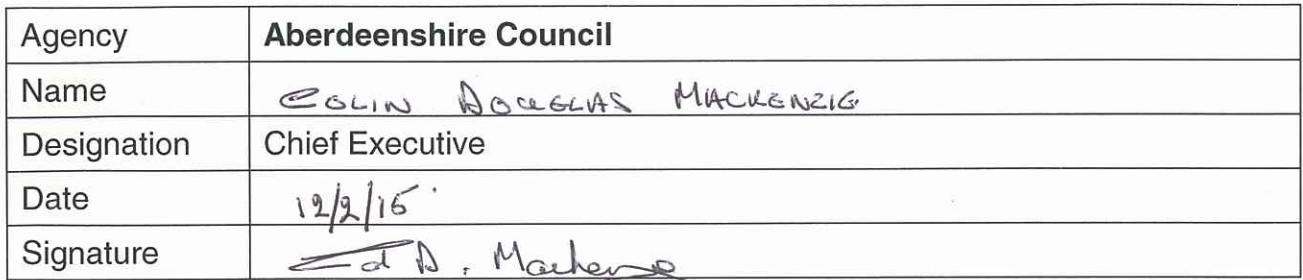 Agency Aberdeenshire Council
Name COLIN DOUGLAS MACKENZIE
Designation Chief Executive
Date 12/2/15
Signature D. Mackenzie